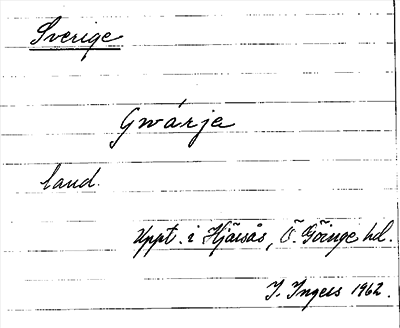 Sverige
Gwárje
land.
Uppt. i Hjärsås, Ö. Göinge hd.
I. Ingers 1962.